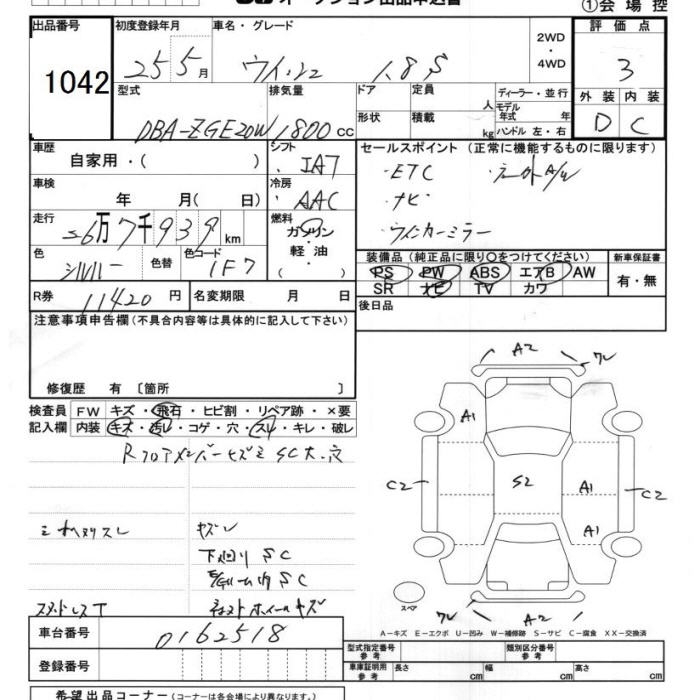 ①会 場 控
出品番号
1042
初度登録年月
25 5月
車名・グレード
ウィッシュ 1.8 S
2WD
・
4WD
評 価 点
3
外 装 内 装
D C
型式
DBA-ZGE20W
排気量
1800 CC
ドア
形状
定員
人
積載
kg
ディーラー・並行
モデル
年式 年
ハンドル 左・右
車歴
自家用・( )
シフト
IA7
セールスポイント (正常に機能するものに限ります)
・ETC
・ナビ
・ウインカーミラー
車検
年 月( 日)
冷房
AAC
走行
6万7千939 km
燃料
ガソリン
・
軽 油
・( )
色
シルバー
色替
色コード
1F7
装備品 (純正品に限り○をつけてください)
PS PW ABS エアB AW
SR ナビ TV カワ
新車保証書
有・無
R券
11420 円
名変期限 月 日
後日品
注意事項申告欄(不具合内容等は具体的に記入して下さい)
修復歴 有 〔箇所 〕
検査員
記入欄
FW キズ・飛石・ヒビ割・リペア跡・×要
内装 キズ・汚レ・コゲ・穴・スレ・キレ・破レ
RフロアメンバーキズミSC大・穴
下廻り SC
スタッドレスT
A2
ワレ
A1
C2
S2
A1
C2
A1
ワレ
A2
スペア
A-キズ E-エクボ U-凹み W-補修跡 S-サビ C-腐食 XX-交換済
車台番号
0162518
登録番号
型式指定番号
参 考
類別区分番号
参 考
車庫証明用
参 考
長さ cm
幅 cm
高さ cm
希望出品コーナー(コーナーは各会場により異なります。)